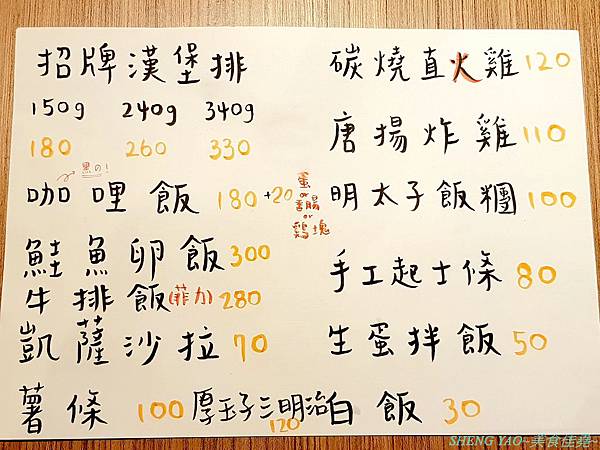 招牌漢堡排
150g 240g 340g
180 260 330
黑の!
咖哩飯 180 +20 蛋
or
香腸
or
鷄塊
鮭魚卵飯 300
牛排飯(菲力) 280
凱薩沙拉 70
薯條 100
碳燒直火雞 120
唐揚炸雞 110
明太子飯糰 100
手工起士條 80
生蛋拌飯 50
厚玉子三明治 120
白飯 30
SHENG YAO~美食佳堯~